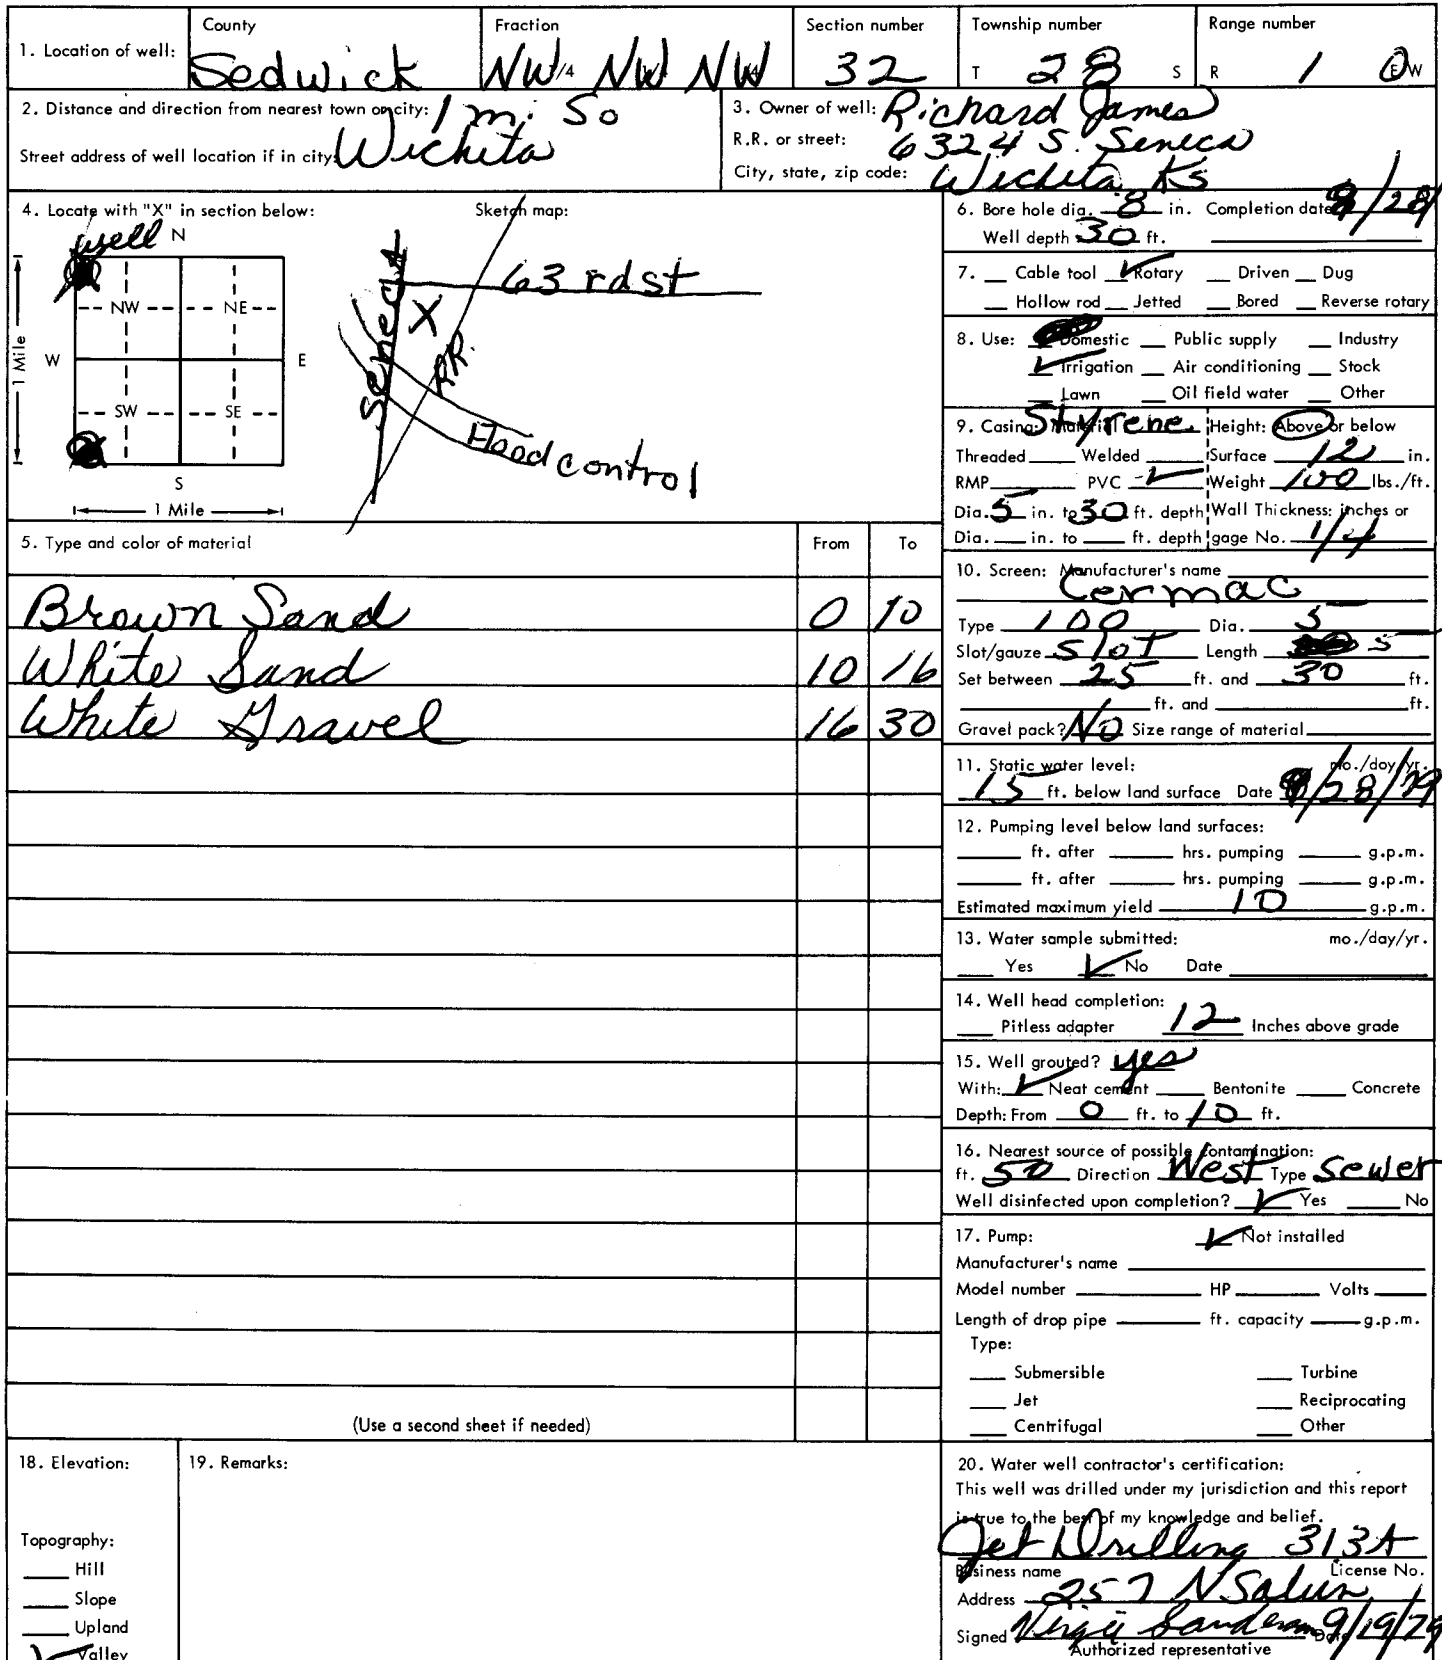 1. Location of well: County Sedwick Fraction NW 1/4 NW NW Section number 32 Township number T 28 S Range number R 1 E W
2. Distance and direction from nearest town or city: 1 mi. So Wichita
Street address of well location if in city:
3. Owner of well: Richard James
R.R. or street: 6324 S. Seneca
City, state, zip code: Wichita Ks
4. Locate with "X" in section below: Sketch map:
well N
NW NE
W E
SW SE
S
1 Mile
1 Mile
63 rd st
Seneca
X
RR.
Flood control
5. Type and color of material From To
Brown Sand 0 10
White Sand 10 16
White Gravel 16 30
(Use a second sheet if needed)
6. Bore hole dia. 8 in. Completion date 8/28/
Well depth 30 ft.
7. Cable tool ✓ Rotary Driven Dug
Hollow rod Jetted Bored Reverse rotary
8. Use: Domestic Public supply Industry
✓ Irrigation Air conditioning Stock
Lawn Oil field water Other
9. Casing: Material Styrene Height: Above or below
Threaded Welded Surface 12 in.
RMP PVC ✓ Weight 100 lbs./ft.
Dia. 5 in. to 30 ft. depth Wall Thickness: inches or
Dia. in. to ft. depth gage No. 1/4
10. Screen: Manufacturer's name
Cermac
Type 100 Dia. 5
Slot/gauze Slot Length 5
Set between 25 ft. and 30 ft.
ft. and ft.
Gravel pack? No Size range of material
11. Static water level: mo./day/yr.
15 ft. below land surface Date 8/28/79
12. Pumping level below land surfaces:
ft. after hrs. pumping g.p.m.
ft. after hrs. pumping g.p.m.
Estimated maximum yield 10 g.p.m.
13. Water sample submitted: mo./day/yr.
Yes ✓ No Date
14. Well head completion:
Pitless adapter 12 Inches above grade
15. Well grouted? yes
With: ✓ Neat cement Bentonite Concrete
Depth: From 0 ft. to 10 ft.
16. Nearest source of possible contamination:
ft. 50 Direction West Type Sewer
Well disinfected upon completion? ✓ Yes No
17. Pump: ✓ Not installed
Manufacturer's name
Model number HP Volts
Length of drop pipe ft. capacity g.p.m.
Type:
Submersible Turbine
Jet Reciprocating
Centrifugal Other
18. Elevation:
Topography:
Hill
Slope
Upland
✓ Valley
19. Remarks:
20. Water well contractor's certification:
This well was drilled under my jurisdiction and this report
is true to the best of my knowledge and belief.
Jet Drilling 313A
Business name License No.
Address 257 N
Signed Date 9/19/79
Authorized representative